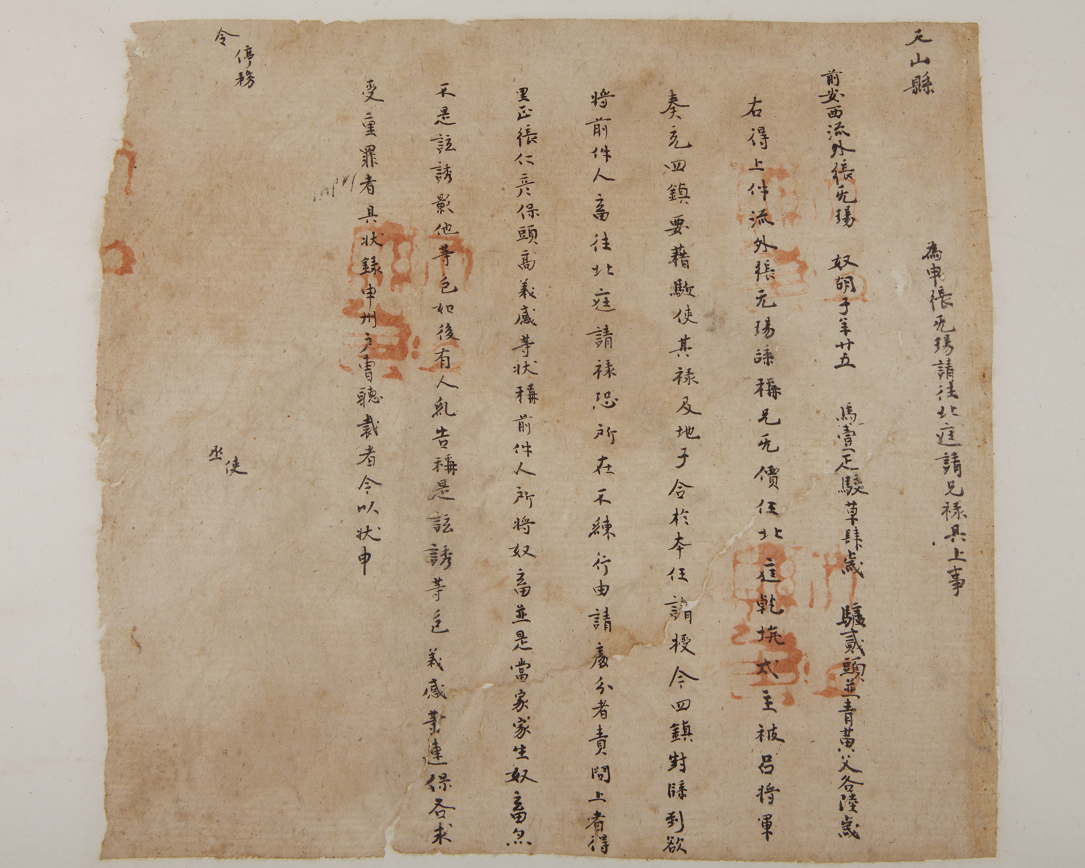 天山縣
為申張无瑒請往北庭請兄祿具上事
前安西流外張旡瑒 奴胡子年廿五 馬壹疋駮草肆歲 驢貳頭並青黃父各陸歲
右得上件流外張无瑒牒稱兄旡價任北庭乾坑戍主被呂將軍
奏充四鎮要籍驅使其祿及地子合於本任請授今四鎮封牒到欲
將前件人畜往北庭請祿恐所在不練行由請處分者責問上者得
里正張仁彥保頭高義感等狀稱前件人所將奴畜並是當家家生奴畜亦
不是詃誘影他等色如後有人乱告稱是詃誘等色義感等連保各求
受重罪者具狀錄申州戶曹聽裁者今以狀申
令
停務
丞
使